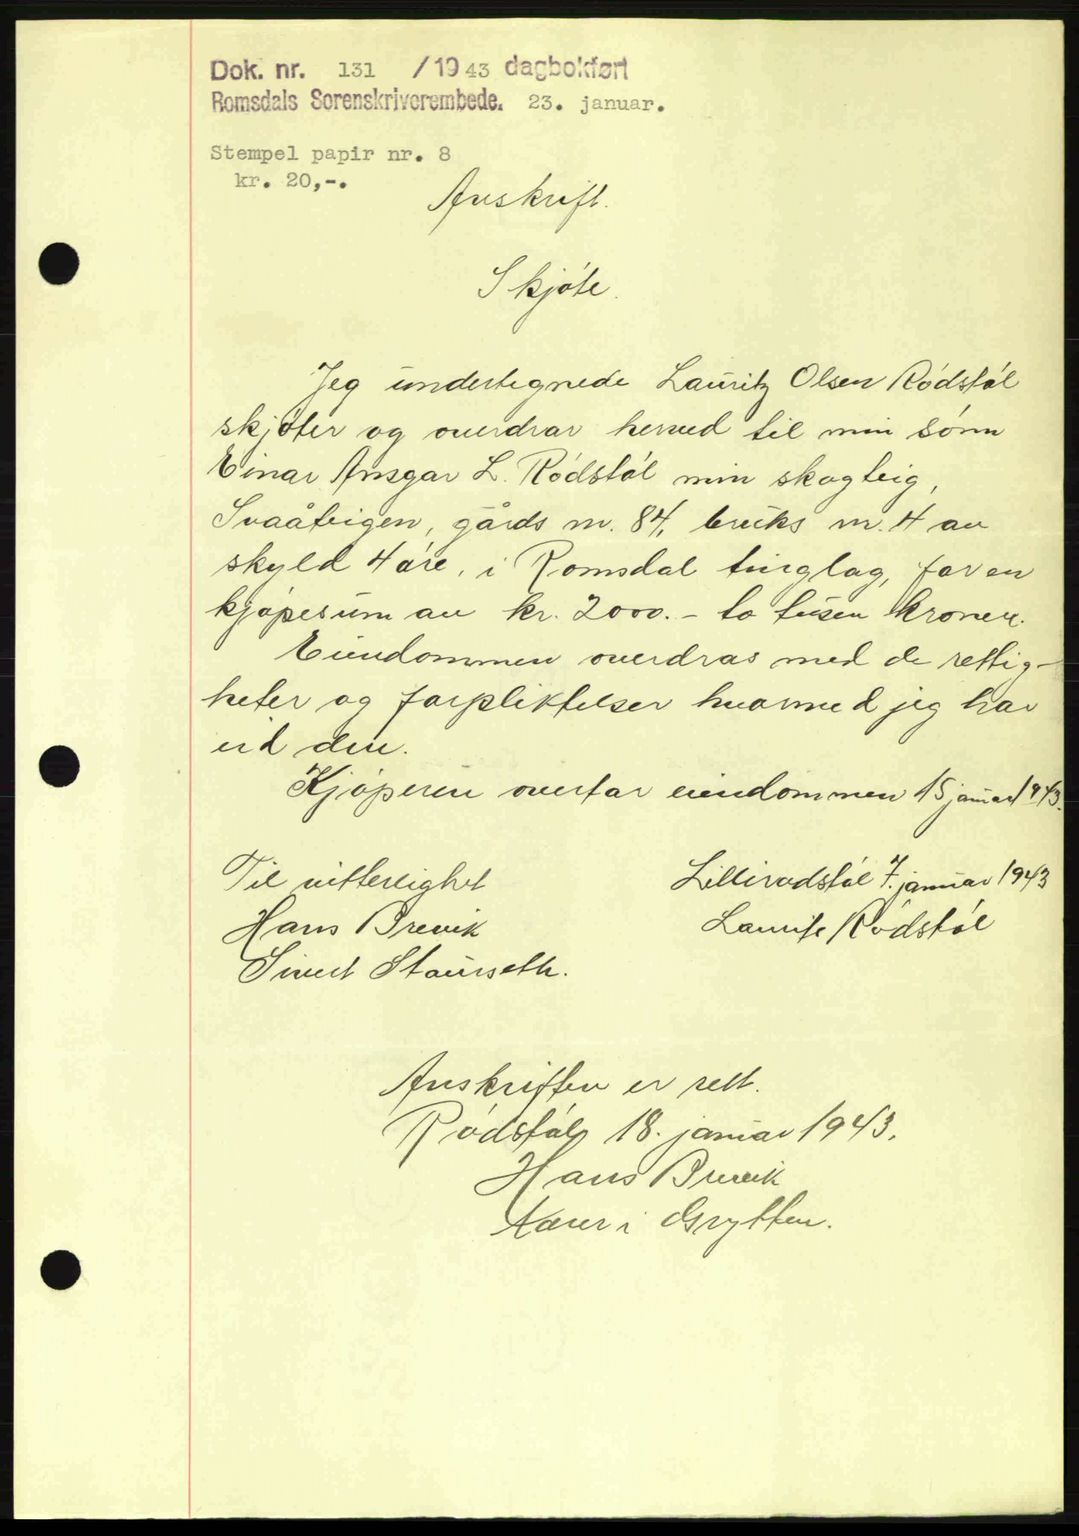 Dok. nr. 131 /1943 dagbokført
Romsdals Sorenskriverembede. 23. januar.
Stempel papir nr. 8
kr. 20,-.
Avskrift.
Skjöte.
Jeg undertegnede Lauritz Olsen Rödstöl
skjöter og overdrar herved til min sönn
Einar Ansgar L. Rödstöl min skogteig,
Svaåteigen, gårds nr. 84, bruks nr. 4 av
skyld 4 öre, i Romsdal tinglag, for en
kjöpesum av kr. 2000.- to tusen kroner.
Eiendommen overdras med de rettig-
heter og forpliktelser hvormed jeg har
eid den.
Kjöperen overtar eiendommen 15 januar 1943.
Til vitterlighet
Lillirödstöl 7. januar 1943
Hans Brevik
Laurits Rödstöl
Sivert Staurseth.
Avskriften er rett.
Rödstöl, 18. januar 1943.
Hans Brevik
lærer i Grytten.